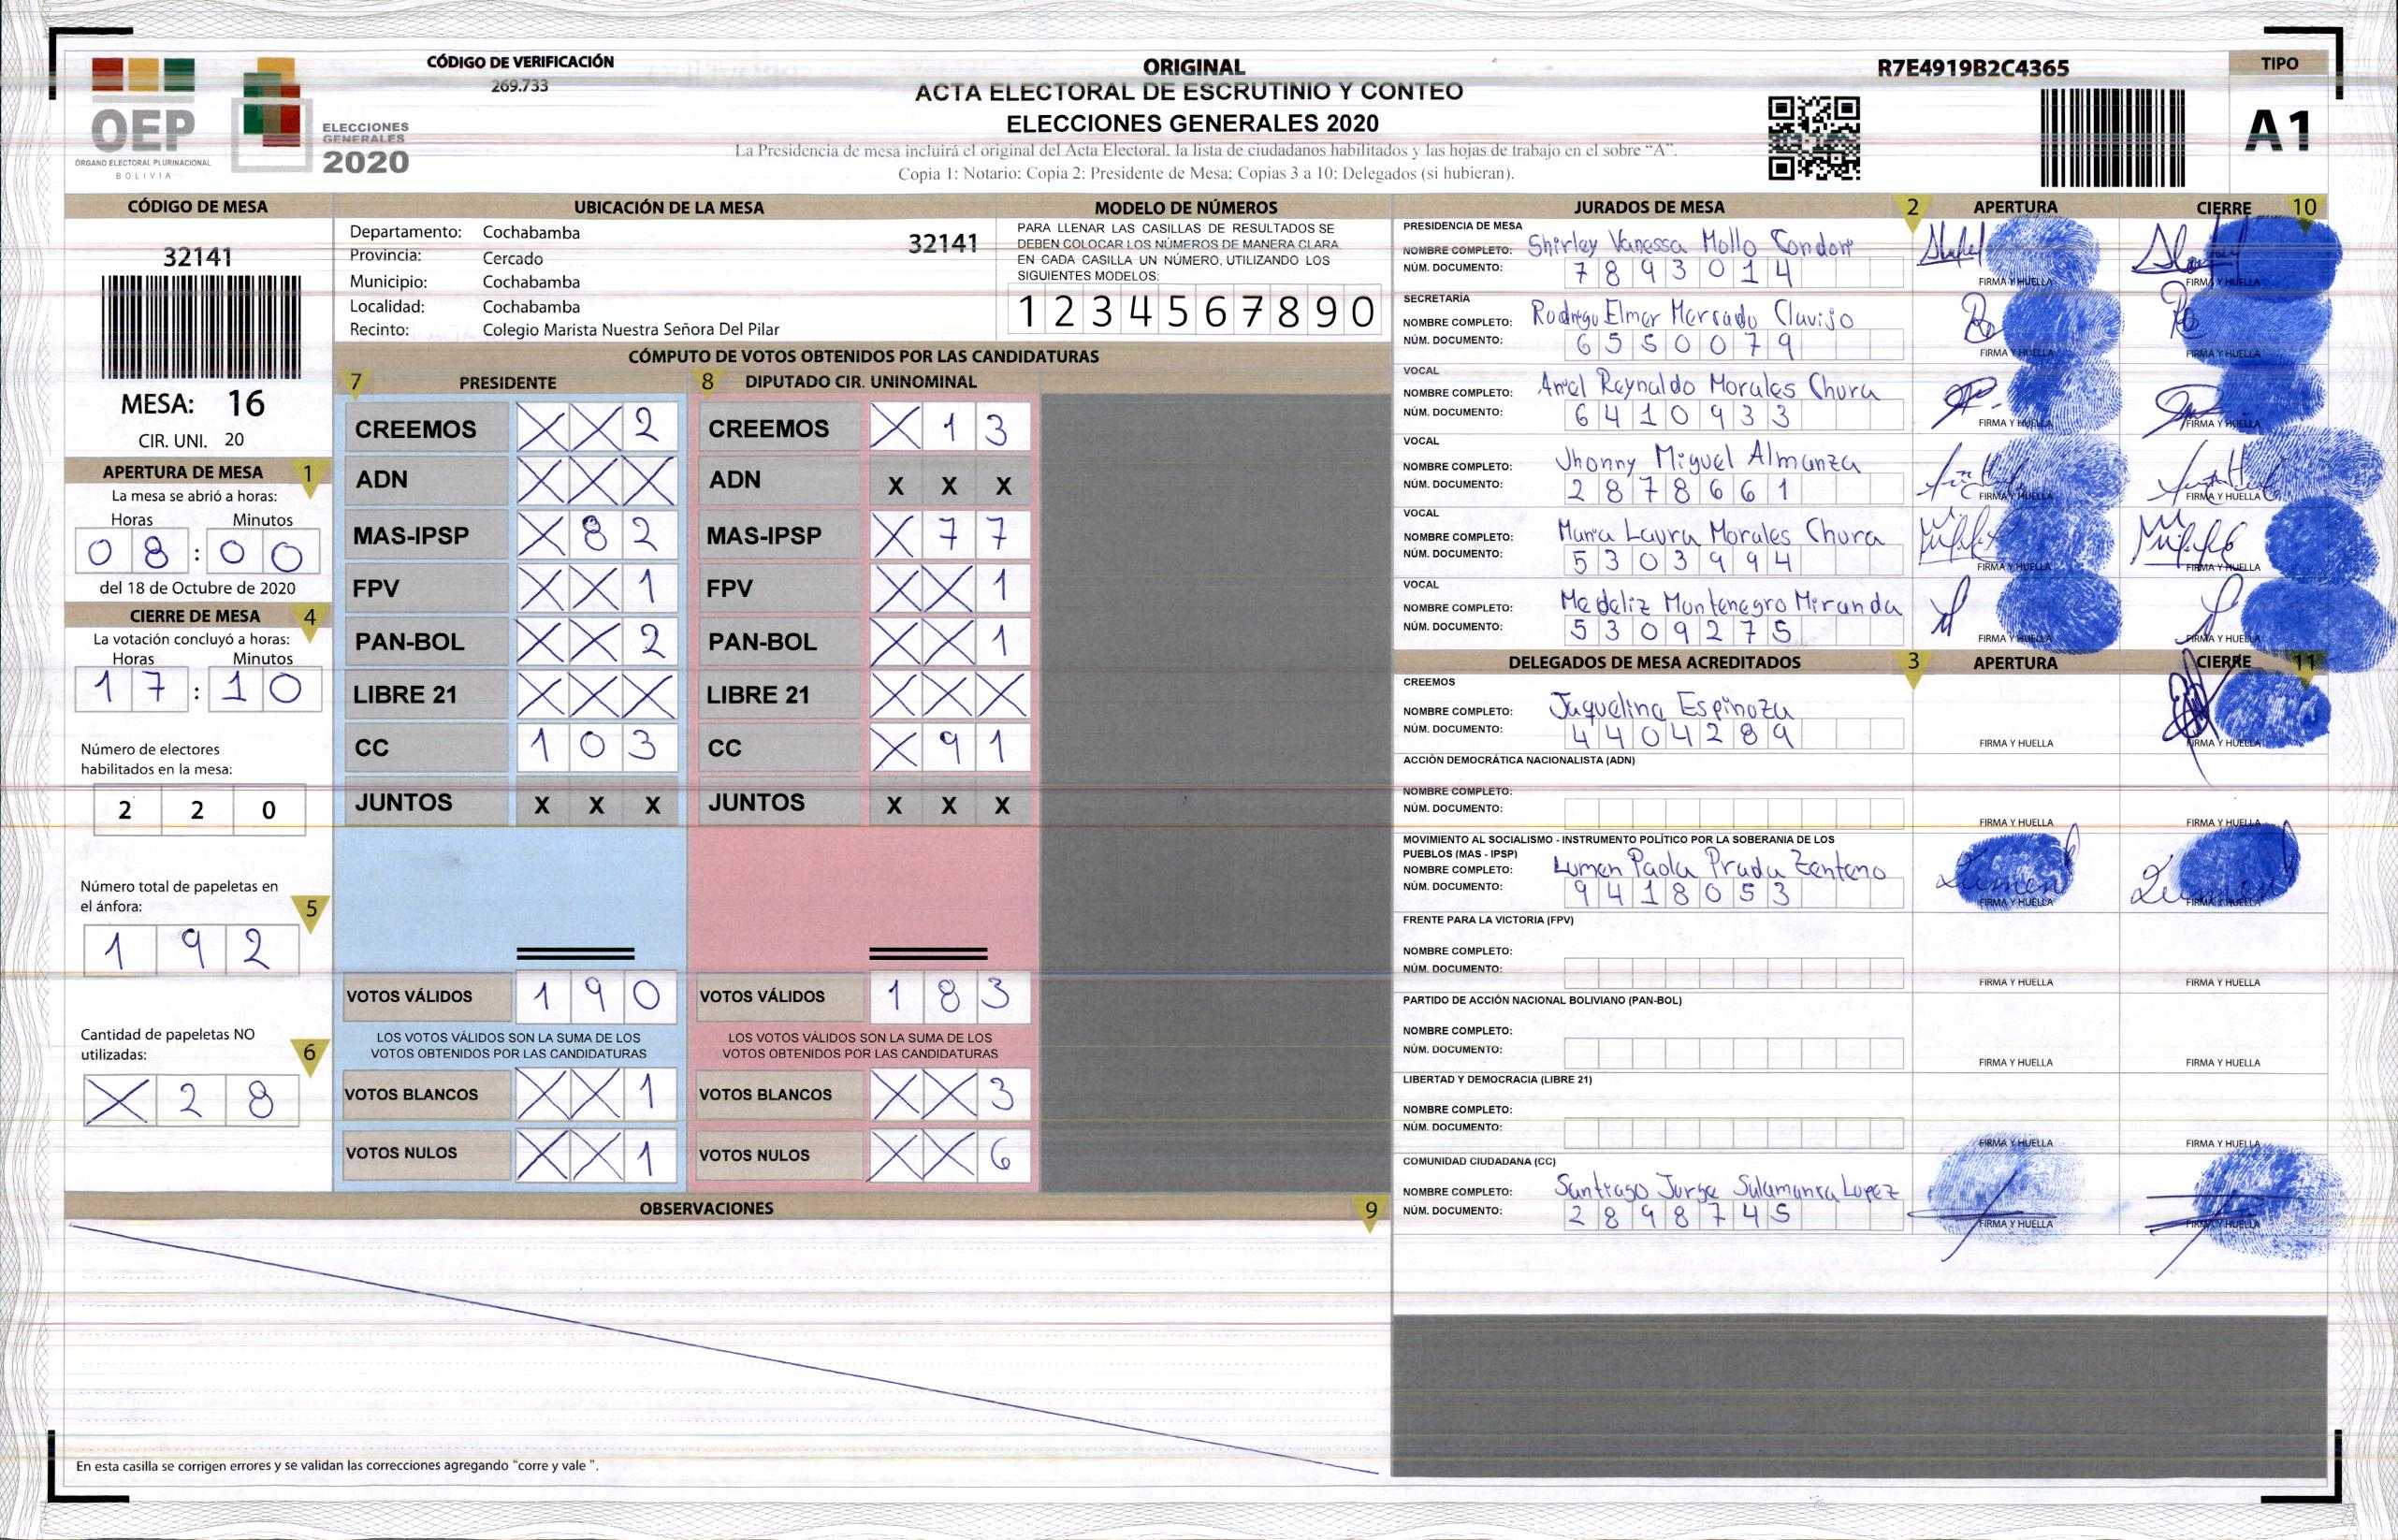 CÓDIGO DE VERIFICACIÓN
269.733
OEP
ÓRGANO ELECTORAL PLURINACIONAL
BOLIVIA
ELECCIONES
GENERALES
2020
ORIGINAL
ACTA ELECTORAL DE ESCRUTINIO Y CONTEO
ELECCIONES GENERALES 2020
La Presidencia de mesa incluirá el original del Acta Electoral, la lista de ciudadanos habilitados y las hojas de trabajo en el sobre “A”.
Copia 1: Notario; Copia 2: Presidente de Mesa; Copias 3 a 10: Delegados (si hubieran).
R7E4919B2C4365
TIPO
A1
CÓDIGO DE MESA
32141
MESA: 16
CIR. UNI. 20
APERTURA DE MESA 1
La mesa se abrió a horas:
Horas Minutos
08:00
del 18 de Octubre de 2020
CIERRE DE MESA 4
La votación concluyó a horas:
Horas Minutos
17:10
Número de electores
habilitados en la mesa:
2 2 0
Número total de papeletas en
el ánfora: 5
1 9 2
Cantidad de papeletas NO
utilizadas: 6
X 2 8
UBICACIÓN DE LA MESA
Departamento: Cochabamba
32141
Provincia: Cercado
Municipio: Cochabamba
Localidad: Cochabamba
Recinto: Colegio Marista Nuestra Señora Del Pilar
MODELO DE NÚMEROS
PARA LLENAR LAS CASILLAS DE RESULTADOS SE
DEBEN COLOCAR LOS NÚMEROS DE MANERA CLARA
EN CADA CASILLA UN NÚMERO, UTILIZANDO LOS
SIGUIENTES MODELOS:
1 2 3 4 5 6 7 8 9 0
CÓMPUTO DE VOTOS OBTENIDOS POR LAS CANDIDATURAS
7 PRESIDENTE 8 DIPUTADO CIR. UNINOMINAL
CREEMOS X X 2 CREEMOS X 1 3
ADN X X X ADN X X X
MAS-IPSP X 8 2 MAS-IPSP X 7 7
FPV X X 1 FPV X X 1
PAN-BOL X X 2 PAN-BOL X X 1
LIBRE 21 X X X LIBRE 21 X X X
CC 1 0 3 CC X 9 1
JUNTOS X X X JUNTOS X X X
VOTOS VÁLIDOS 1 9 0 VOTOS VÁLIDOS 1 8 3
LOS VOTOS VÁLIDOS SON LA SUMA DE LOS LOS VOTOS VÁLIDOS SON LA SUMA DE LOS
VOTOS OBTENIDOS POR LAS CANDIDATURAS VOTOS OBTENIDOS POR LAS CANDIDATURAS
VOTOS BLANCOS X X 1 VOTOS BLANCOS X X 3
VOTOS NULOS X X 1 VOTOS NULOS X X 6
OBSERVACIONES 9
En esta casilla se corrigen errores y se validan las correcciones agregando “corre y vale ”.
JURADOS DE MESA 2 APERTURA CIERRE 10
PRESIDENCIA DE MESA
NOMBRE COMPLETO: Shirley Vanessa Mollo Condori
NÚM. DOCUMENTO: 7893014
FIRMA Y HUELLA FIRMA Y HUELLA
SECRETARÍA
NOMBRE COMPLETO: Rodrigo Elmer Mercado Clavijo
NÚM. DOCUMENTO: 6550079
FIRMA Y HUELLA FIRMA Y HUELLA
VOCAL
NOMBRE COMPLETO: Ariel Reynaldo Morales Chura
NÚM. DOCUMENTO: 6410933
FIRMA Y HUELLA FIRMA Y HUELLA
VOCAL
NOMBRE COMPLETO: Jhonny Miguel Almanza
NÚM. DOCUMENTO: 2878661
FIRMA Y HUELLA FIRMA Y HUELLA
VOCAL
NOMBRE COMPLETO: Maria Laura Morales Chura
NÚM. DOCUMENTO: 5303994
FIRMA Y HUELLA FIRMA Y HUELLA
VOCAL
NOMBRE COMPLETO: Medeliz Montenegro Miranda
NÚM. DOCUMENTO: 5309275
FIRMA Y HUELLA FIRMA Y HUELLA
DELEGADOS DE MESA ACREDITADOS 3 APERTURA CIERRE 11
CREEMOS
NOMBRE COMPLETO: Jaquelina Espinoza
NÚM. DOCUMENTO: 4404289
FIRMA Y HUELLA FIRMA Y HUELLA
ACCIÓN DEMOCRÁTICA NACIONALISTA (ADN)
NOMBRE COMPLETO:
NÚM. DOCUMENTO:
FIRMA Y HUELLA FIRMA Y HUELLA
MOVIMIENTO AL SOCIALISMO - INSTRUMENTO POLÍTICO POR LA SOBERANIA DE LOS
PUEBLOS (MAS - IPSP)
NOMBRE COMPLETO: Lumen Paola Prada Zenteno
NÚM. DOCUMENTO: 9418053
Lumen Lumen
FIRMA Y HUELLA FIRMA Y HUELLA
FRENTE PARA LA VICTORIA (FPV)
NOMBRE COMPLETO:
NÚM. DOCUMENTO:
FIRMA Y HUELLA FIRMA Y HUELLA
PARTIDO DE ACCIÓN NACIONAL BOLIVIANO (PAN-BOL)
NOMBRE COMPLETO:
NÚM. DOCUMENTO:
FIRMA Y HUELLA FIRMA Y HUELLA
LIBERTAD Y DEMOCRACIA (LIBRE 21)
NOMBRE COMPLETO:
NÚM. DOCUMENTO:
FIRMA Y HUELLA FIRMA Y HUELLA
COMUNIDAD CIUDADANA (CC)
NOMBRE COMPLETO: Santiago Jorge Salamanca Lopez
NÚM. DOCUMENTO: 2898745
FIRMA Y HUELLA FIRMA Y HUELLA